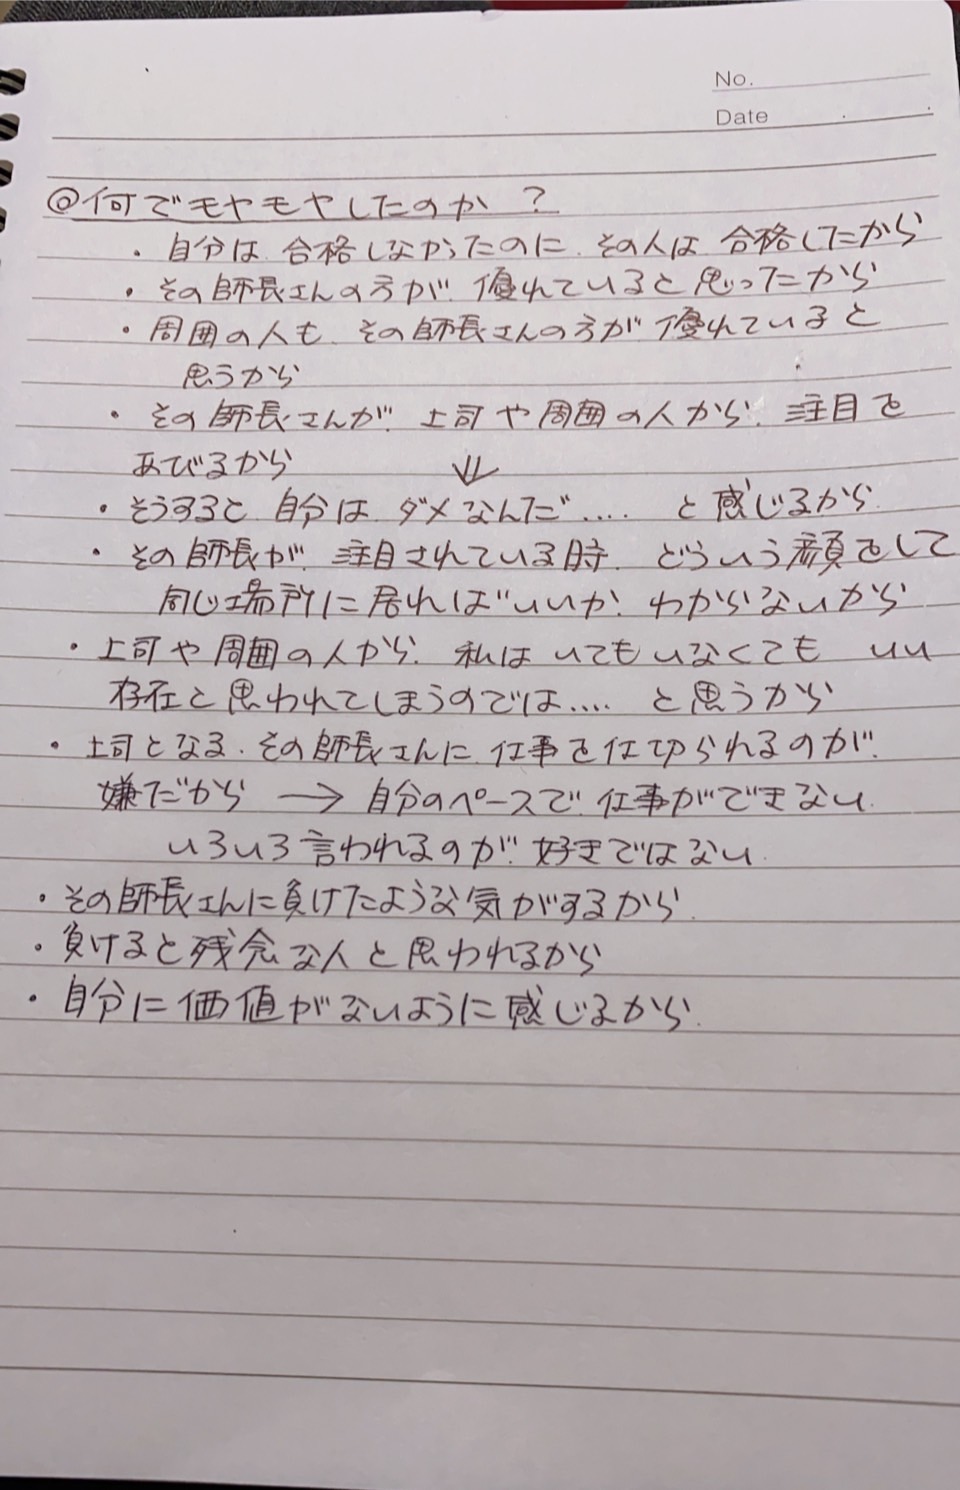 No.
Date
@何でモヤモヤしたのか?
・自分は 合格しなかったのに、その人は 合格したから
・その師長さんの方が、優れていると思ったから
・周囲の人も、その師長さんの方が優れていると
思うから
・その師長さんが、上司や周囲の人から、注目を
あびるから ⇓
・そうすると、自分は、ダメなんだ‥‥ と感じるから
・その師長が、注目されている時、どういう顔をして
同じ場所に居ればいいか、わからないから
・上司や周囲の人から、私は いてもいなくても いい
存在と思われてしまうのでは‥‥ と思うから
・上司となる、その師長さんに、仕事を仕切られるのが、
嫌だから → 自分のペースで、仕事ができない、
いろいろ言われるのが、好きではない、
・その師長さんに負けたような気がするから、
・負けると残念な人と思われるから
・自分に価値がないように感じるから、